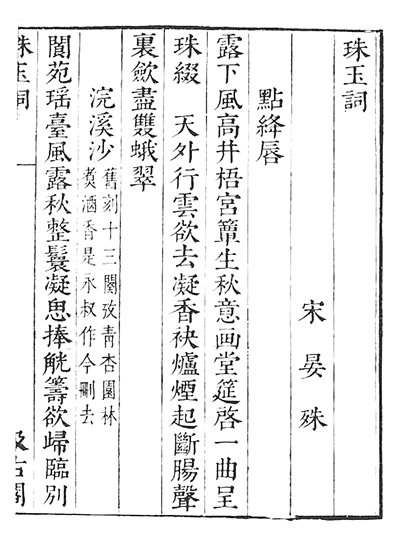 珠玉詞
宋 晏 殊
點絳唇
露下風高井梧宮簟生秋意画堂筵啓一曲呈
珠綴 天外行雲欲去凝香袂爐煙起斷腸聲
裏斂盡雙蛾翠
浣溪沙 舊刻十三闋攷青杏園林
煑酒香是永叔作今刪去
閬苑瑶臺風露秋整鬟凝思捧觥籌欲歸臨別
珠玉詞
汲古閣